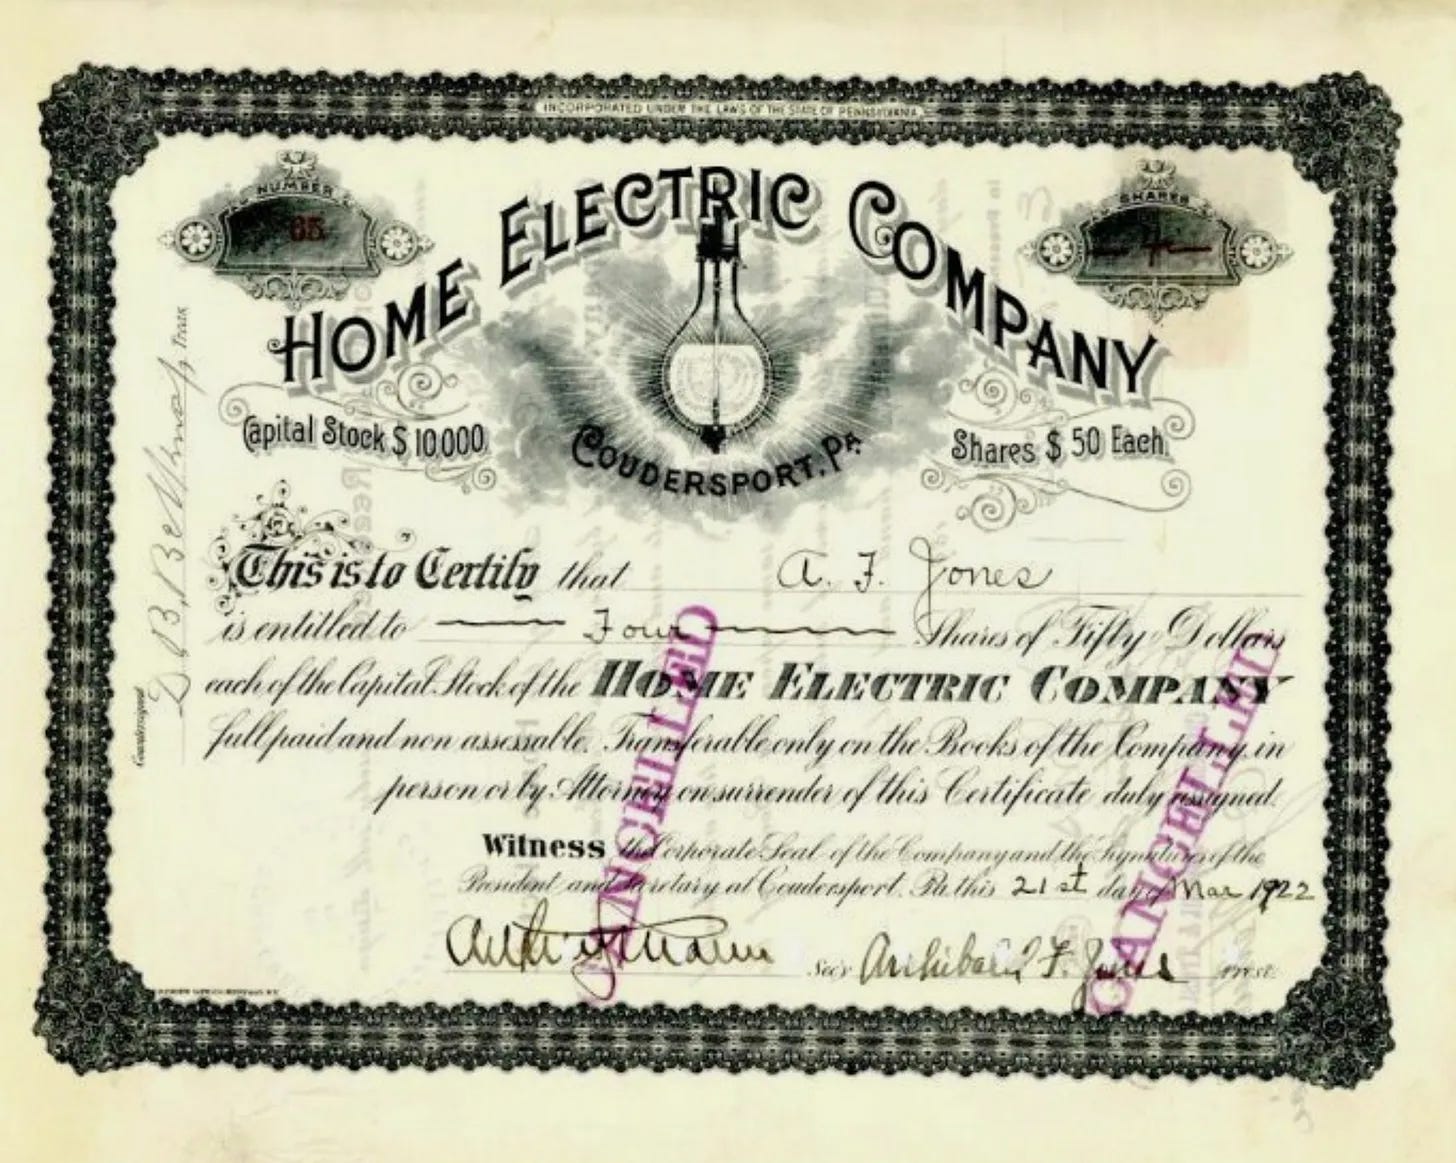 INCORPORATED UNDER THE LAWS OF THE STATE OF PENNSYLVANIA.
NUMBER
65
SHARES
4
HOME ELECTRIC COMPANY
Capital Stock $10000.
COUDERSPORT, PA.
Shares $50 Each.
This is to Certify that A. F. Jones
is entitled to Four Shares of Fifty Dollars
each of the Capital Stock of the HOME ELECTRIC COMPANY
full paid and non assessable. Transferable only on the Books of the Company in
person or by Attorney on surrender of this Certificate duly assigned.
Witness the Corporate Seal of the Company and the Signatures of the
President and Secretary at Coudersport, Pa. this 21st day of Mar 1922
Sec'y Archibald F. Jones Prest.
Countersigned
D. B. Treas
CANCELLED
CANCELLED